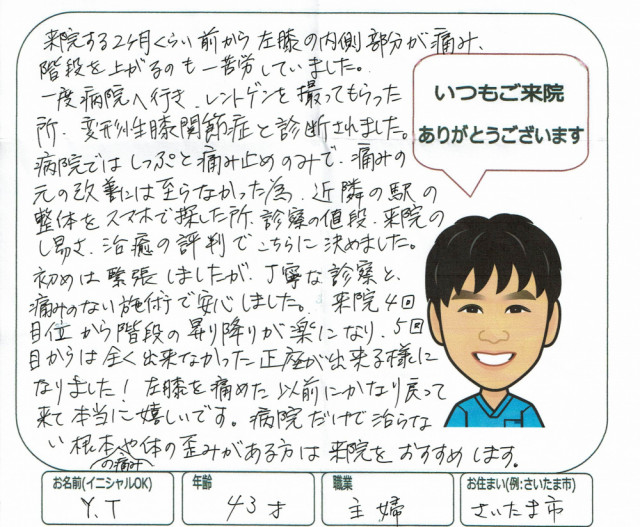 来院する2ヶ月くらい前から左膝の内側部分が痛み、
階段を上がるのも一苦労していました。
一度病院へ行き、レントゲンを撮ってもらった
所、変形性膝関節症と診断されました。
病院ではしっぷと痛み止めのみで、痛みの
元の改善には至らなかった為、近隣の駅の
整体をスマホで探した所、診察の値段、来院の
し易さ、治癒の評判でこちらに決めました。
初めは緊張しましたが、丁寧な診察と、
痛みのない施術で安心しました。来院4回
目位から階段の昇り降りが楽になり、5回
目からは全く出来なかった正座が出来る様に
なりました!左膝を痛めた以前にかなり戻って
来て本当に嬉しいです。病院だけで治らな
い根本の痛みや体の歪みがある方は来院をおすすめします。
いつもご来院
ありがとうございます
お名前(イニシャルOK)
Y.T
年齢
43才
職業
主婦
お住まい(例:さいたま市)
さいたま市